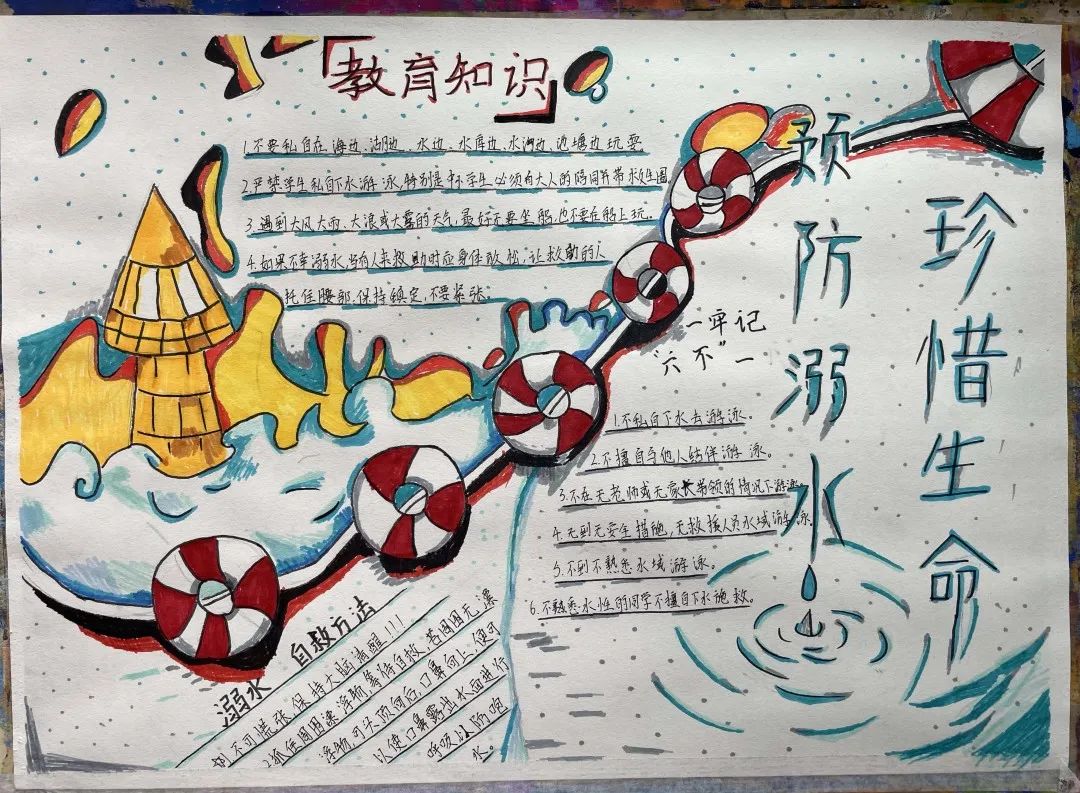 教育知识
1.不要私自在海边、湖边、水边、水库边、水沟边、池塘边玩耍
2.严禁学生私自下水游泳,特别是小学生必须有大人的陪同并带救生圈
3.遇到大风大雨、大浪或大雾的天气,最好不要坐船,也不要在船上玩。
4.如果不幸溺水,当有人来救助时应身体放松,让救助的人
托住腰部.保持镇定,不要紧张。
预防溺水
珍惜生命
一牢记
"六不"一
1.不私自下水去游泳。
2.不擅自与他人结伴游泳。
3.不在无老师或无家长带领的情况下游泳。
4.无到无安全措施,无救援人员水域游泳.
5.不到不熟悉水域游泳。
6.不熟悉水性的同学不擅自下水施救。
溺水 自救方法
不可慌张,保持大脑清醒!!!
2.抓住周围漂浮物等待自救,若周围无漂
浮物,可头顶向后,口鼻向上,使可
以使口鼻露出水面进行
呼吸以防呛
水。